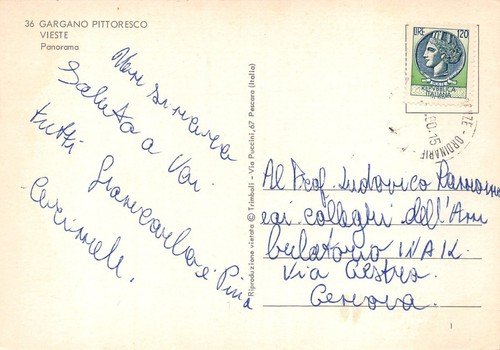 36 GARGANO PITTORESCO
VIESTE
Panorama
Saluto a Voi
tutti Giancarlo e Pina
Riproduzione vietata © Trimboli - Via Puccini, 67 Pescara (Italia)
LIRE 120
REPVBBLICA
ITALIANA
ORDINARIE
Al Prof. Ludovico
e ai colleghi dell'Am
bulatorio INAIL
Via
Genova.